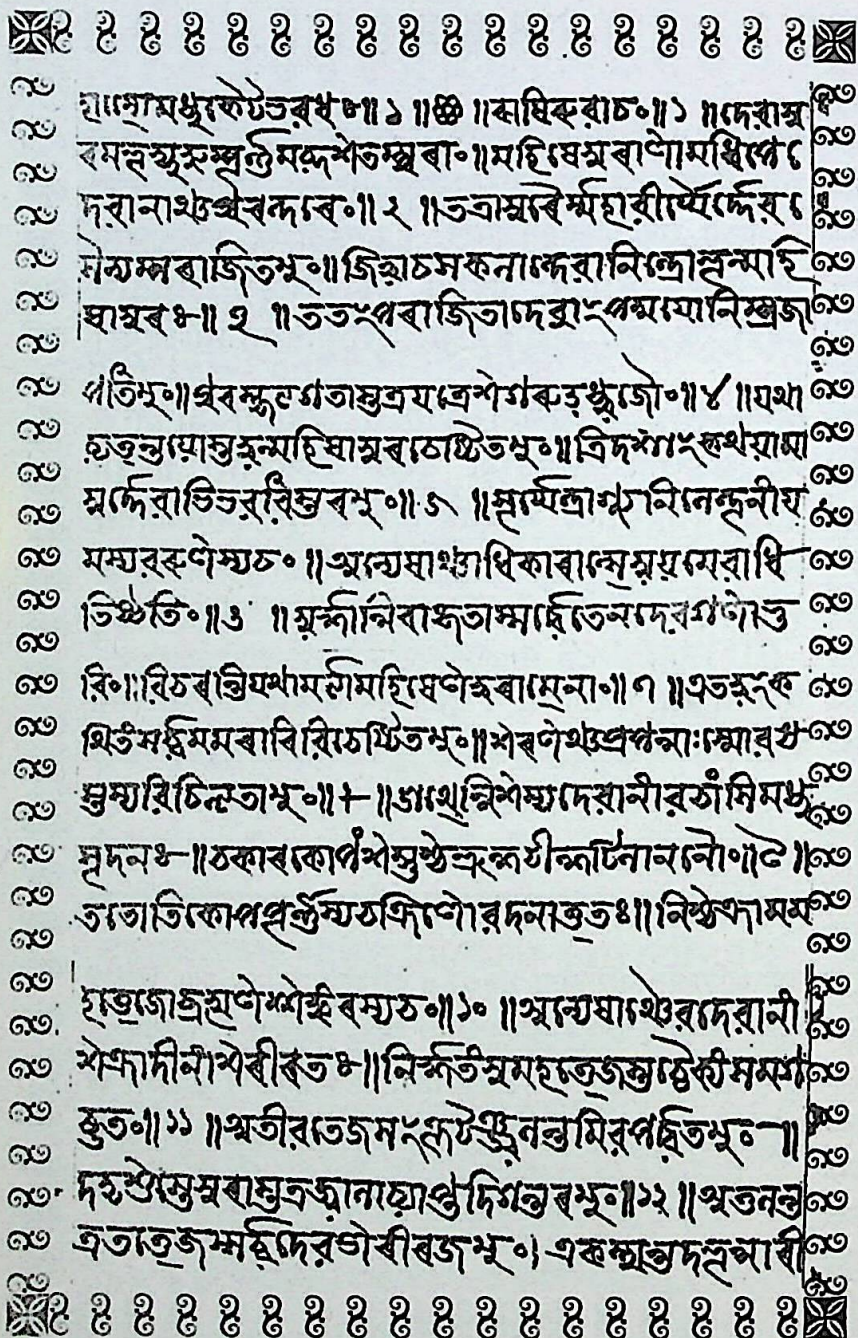 হিষোমধুকৈটভৱধঃ॥ ১ ॥ ঋষিৰুৱাচ॥ ১ ॥ দেৱাসু
ৰমভূদ্যুদ্ধম্পূৰ্ণমব্দশতম্পুৰা॥ মহিষেসুৰাণামধিপে
দেৱানাঞ্চপুৰন্দৰে॥ ২ ॥ তত্ৰাসুৰৈৰ্ম্মহাৱীৰ্য্যৈৰ্দ্দেৱ
সৈন্যম্পৰাজিতম্॥ জিত্বাচসকলান্দেৱানিন্দ্ৰোভূন্মহি
ষাসুৰঃ॥ ৩ ॥ ততঃপৰাজিতাদেৱাঃপদ্মযোনিম্প্ৰজা
পতিম্॥ পুৰস্কৃত্যগতাস্তত্ৰযত্ৰেশগৰুড়ধ্বজৌ॥ ৪ ॥ যথা
ৱৃত্তন্তয়োস্তদ্বন্মহিষাসুৰচেষ্টিতম্॥ ত্ৰিদশাঃকথয়ামা
সুৰ্দ্দেৱাভিভৱৱিস্তৰম্॥ ৫ ॥ সূৰ্য্যেন্দ্ৰাগ্ন্যনিলেন্দূনাংয
মস্যৱৰুণস্যচ॥ অন্যেষাঞ্চাধিকাৰান্সস্বয়মেৱাধি
তিষ্ঠতি॥ ৬ ॥ স্বৰ্গান্নিৰাকৃতাস্সৰ্ব্বেতেনদেৱগণাভু
ৱি॥ ৱিচৰন্তিযথামৰ্ত্ত্যামহিষেণদুৰাত্মনা॥ ৭ ॥ এতদ্বঃক
থিতংসৰ্ব্বমমৰাৰিৱিচেষ্টিতম্॥ শৰণংৱঃপ্ৰপন্নাঃস্মোৱধ
স্তস্যৱিচিন্ত্যতাম্॥ ৮ ॥ ইত্থন্নিশম্যদেৱানাংৱচাংসিমধু
সূদনঃ॥ চকাৰকোপংশম্ভুশ্চভ্ৰূকুটীকুটিলাননৌ॥ ৯ ॥
ততোতিকোপপূৰ্ণস্যচক্ৰিণোৱদনাত্ততঃ॥ নিশ্চক্ৰামম
হত্তেজোব্ৰহ্মণশ্শঙ্কৰস্যচ॥ ১০ ॥ অন্যেষাঞ্চৈৱদেৱানাং
শক্ৰাদীনাংশৰীৰতঃ॥ নিৰ্গতংসুমহত্তেজস্তচ্চৈক্যংসমগ
চ্ছত॥ ১১ ॥ অতীৱতেজসঃকূটঞ্জ্বলন্তমিৱপৰ্ব্বতম্॥
দদৃশুস্তেসুৰাস্তত্ৰজ্বালাৱ্যাপ্তদিগন্তৰম্॥ ১২ ॥ অতুলন্ত
ত্ৰতত্তেজস্সৰ্ব্বদেৱশৰীৰজম্। একস্থন্তদভূন্নাৰী